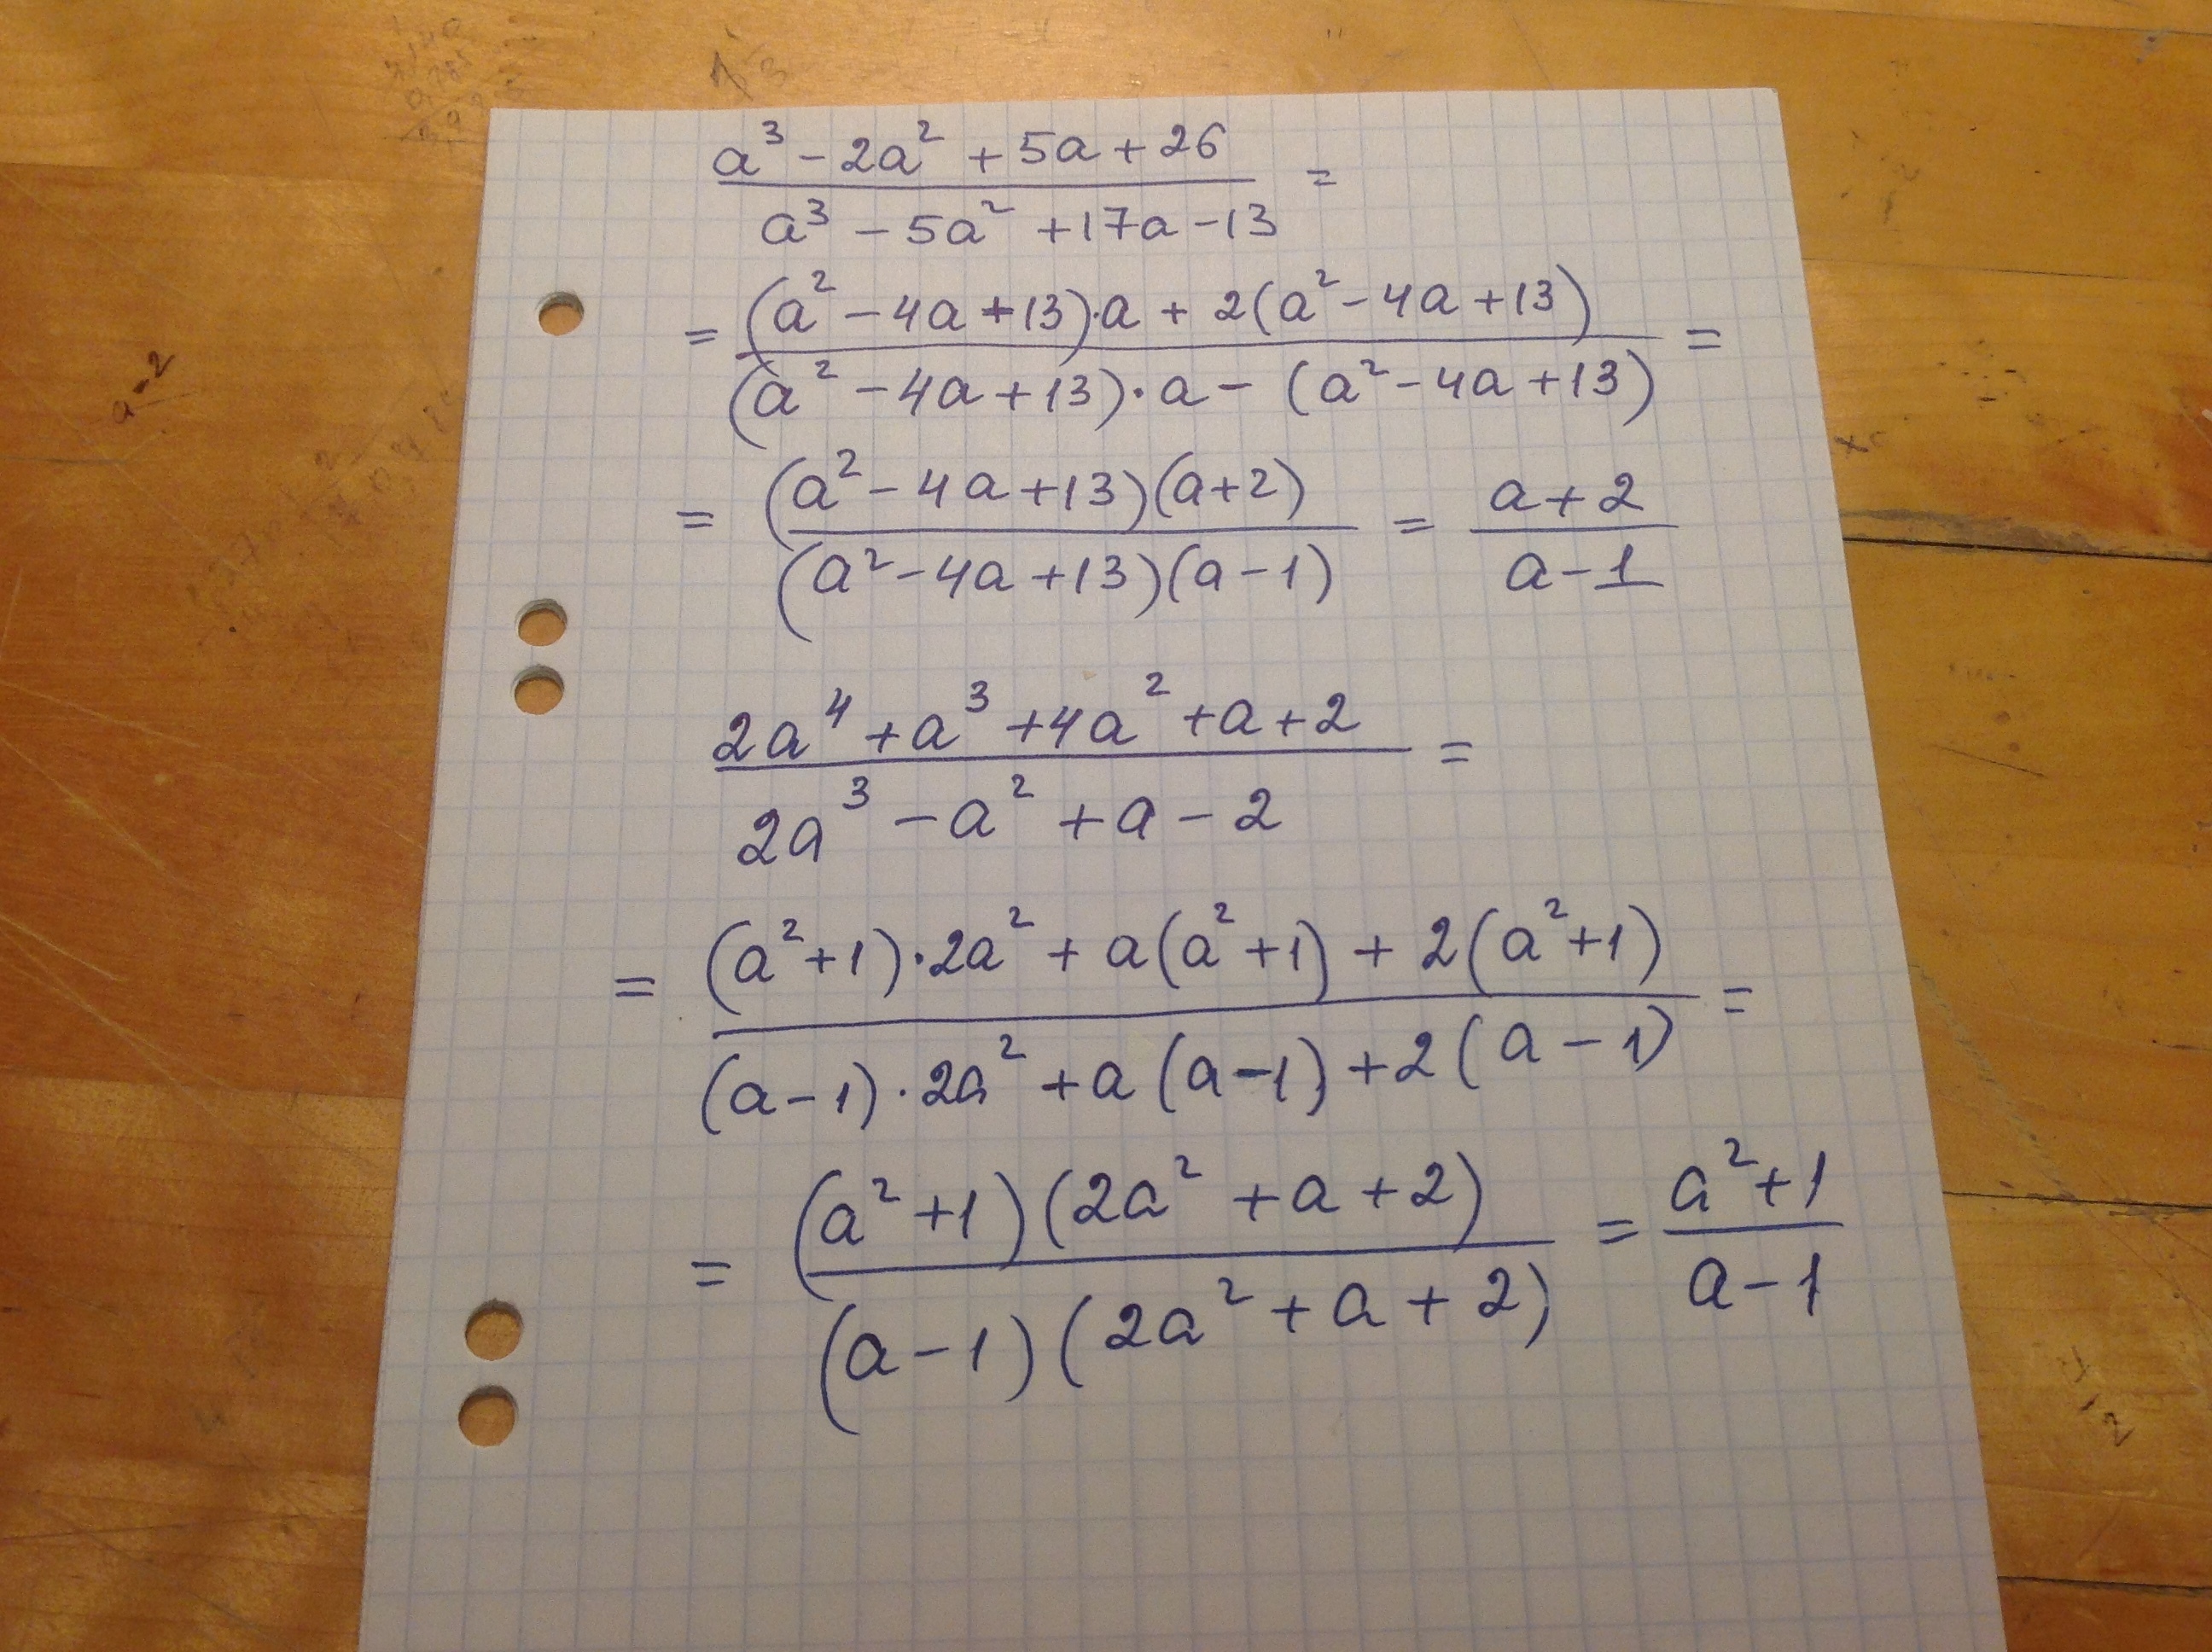 a³ - 2a² + 5a + 26 =
a³ - 5a² + 17a - 13
= (a² - 4a + 13)·a + 2(a² - 4a + 13) =
(a² - 4a + 13)·a - (a² - 4a + 13)
= (a² - 4a + 13)(a + 2) = a + 2
(a² - 4a + 13)(a - 1) a - 1
2a⁴ + a³ + 4a² + a + 2 =
2a³ - a² + a - 2
= (a² + 1)·2a² + a(a² + 1) + 2(a² + 1) =
(a - 1)·2a² + a(a - 1) + 2(a - 1)
= (a² + 1)(2a² + a + 2) = a² + 1
(a - 1)(2a² + a + 2) a - 1